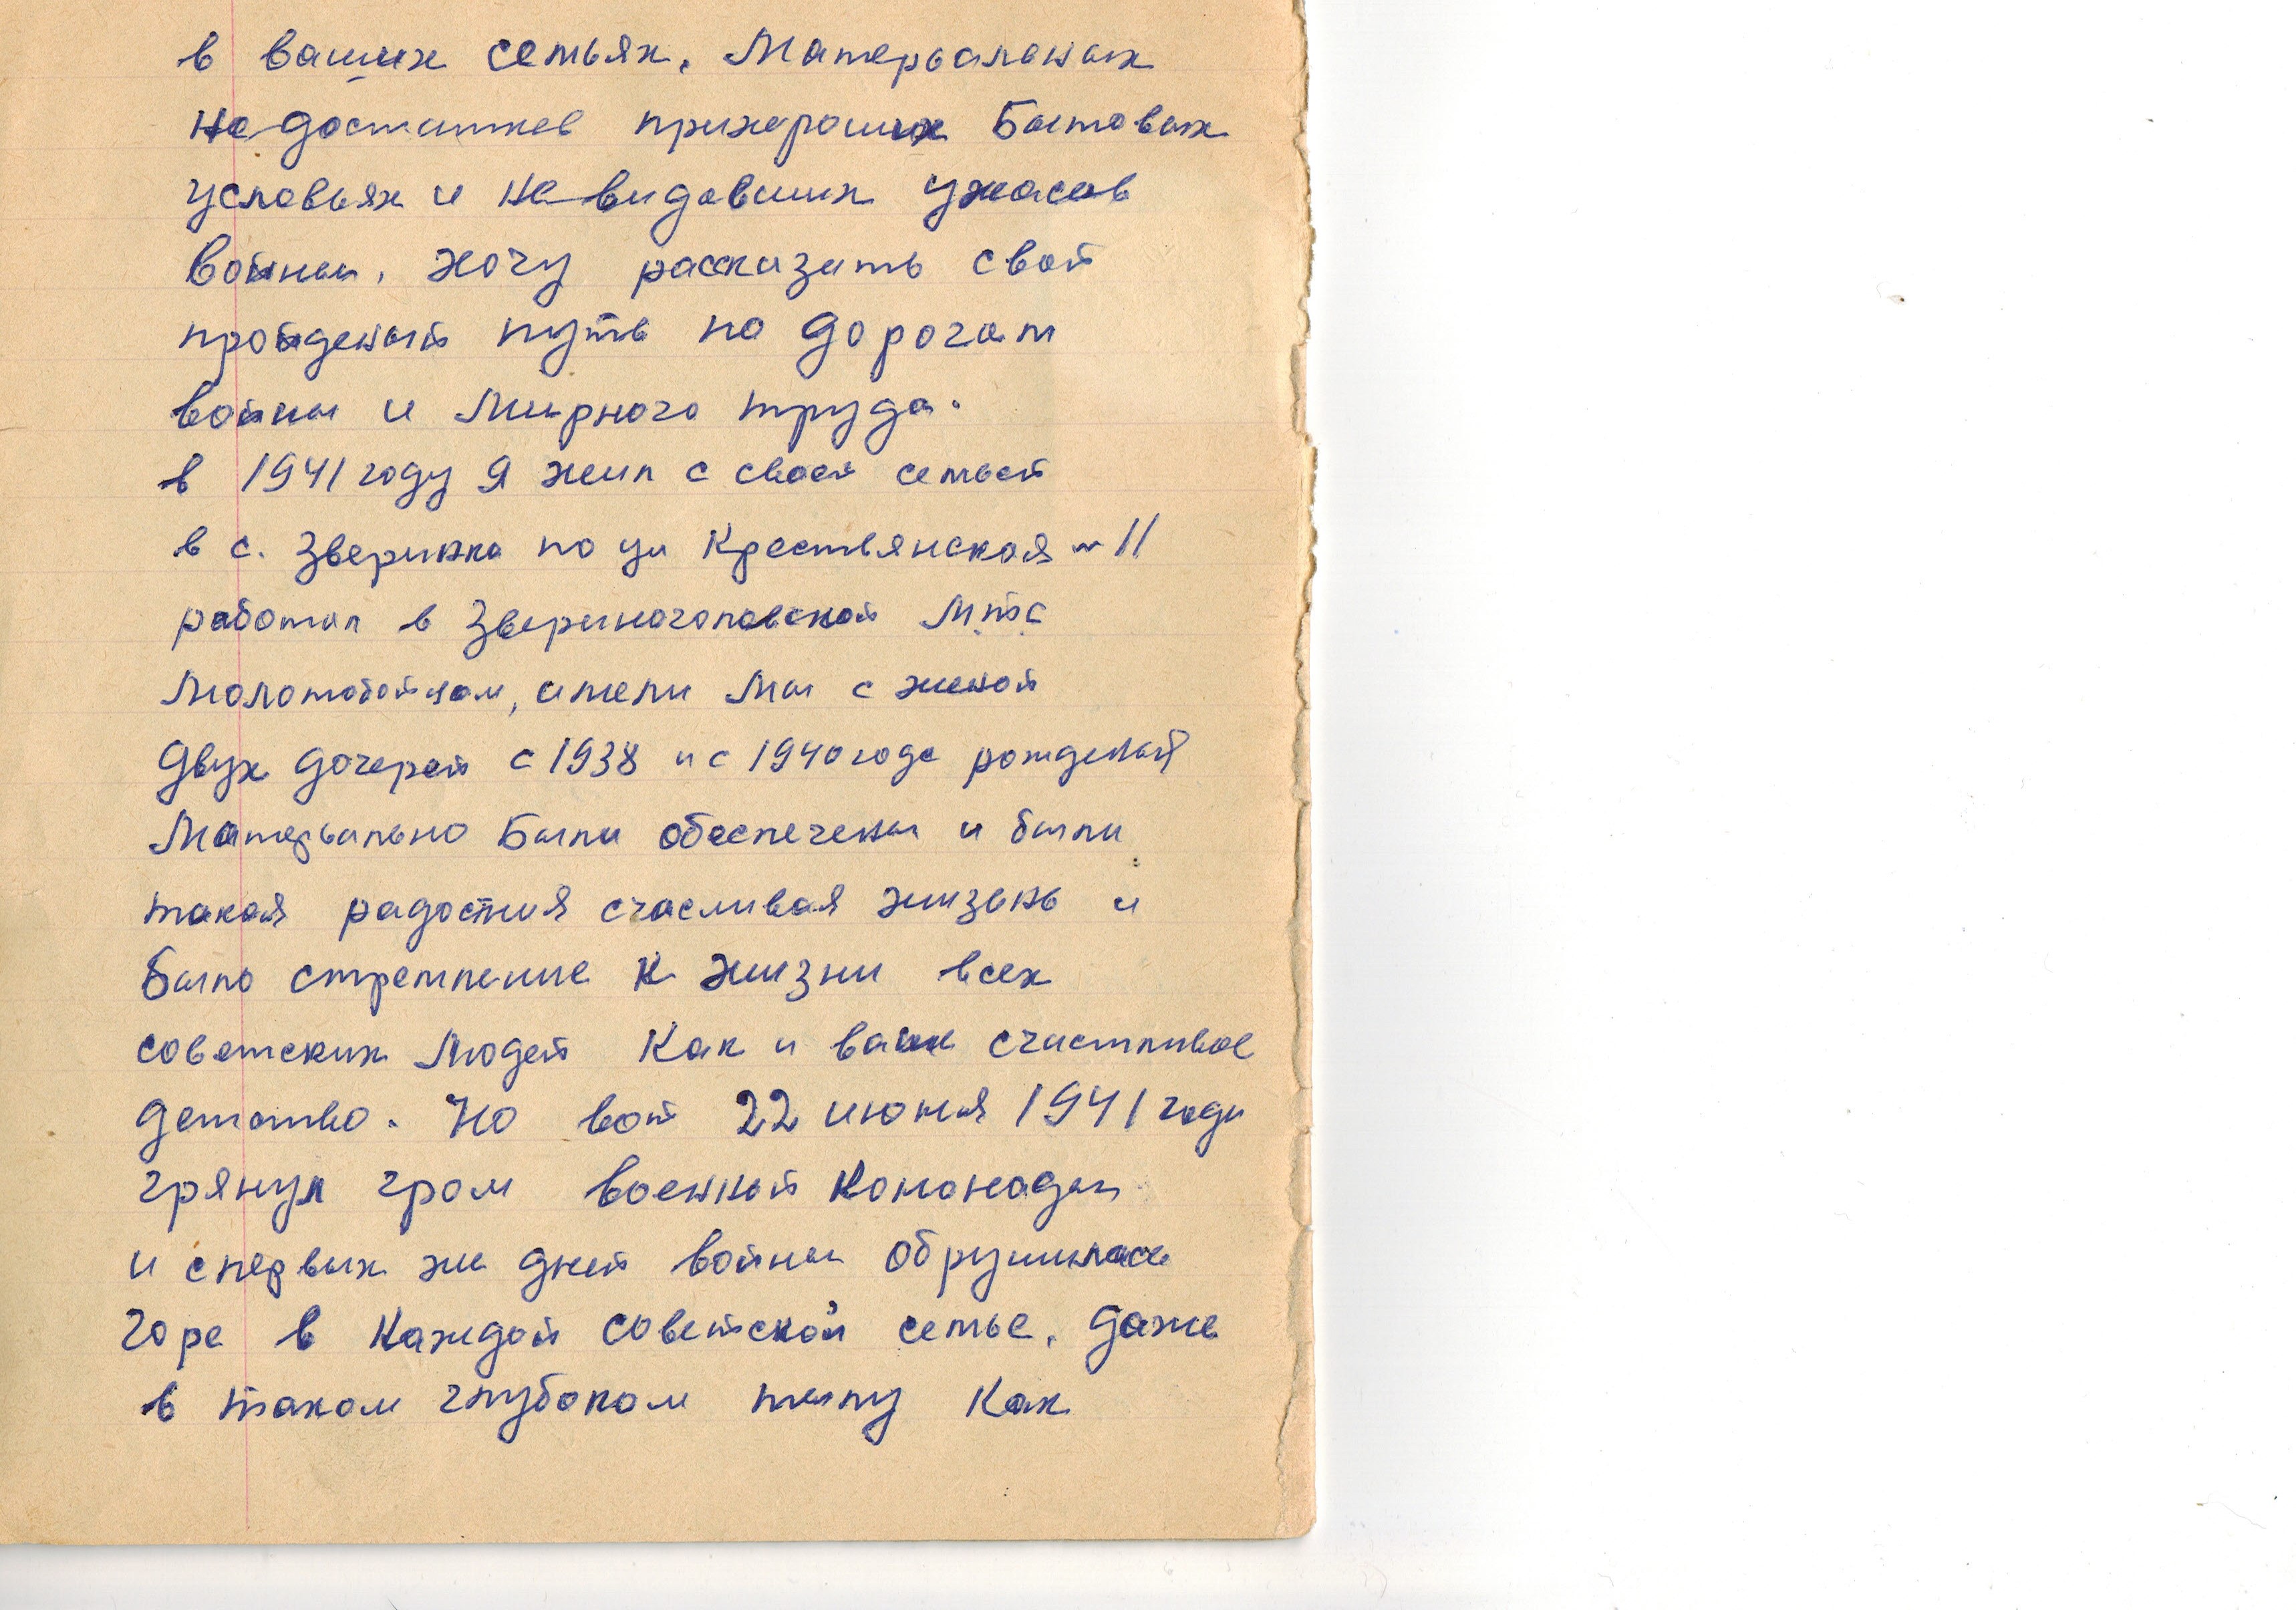 в ваших семьях, Матерьальных
не достатков прихороших Бытовых
условьях и не видавших ужасов
войны, хочу рассказать свой
пройденый путь по дорогам
войны и Мирного труда.
в 1941 году Я жил с своей семьей
в с. Зверинка по ул Крестьянская - 11
работал в Звериноголовской М.т.с
Молотобойцом, имели Мы с женой
двух дочерей с 1938 и с 1940 года рождений
Матерьально Были обеспечены и были
такая радостная счасливая жизьнь и
Было стремление к жизни всех
советских Людей Как и ваше счастливое
детство. Но вот 22 июня 1941 года
грянул гром военный Кононады
и спервых же дней войны обрушилась
горе в Каждой советской семье, даже
в таком глубоком тылу Как